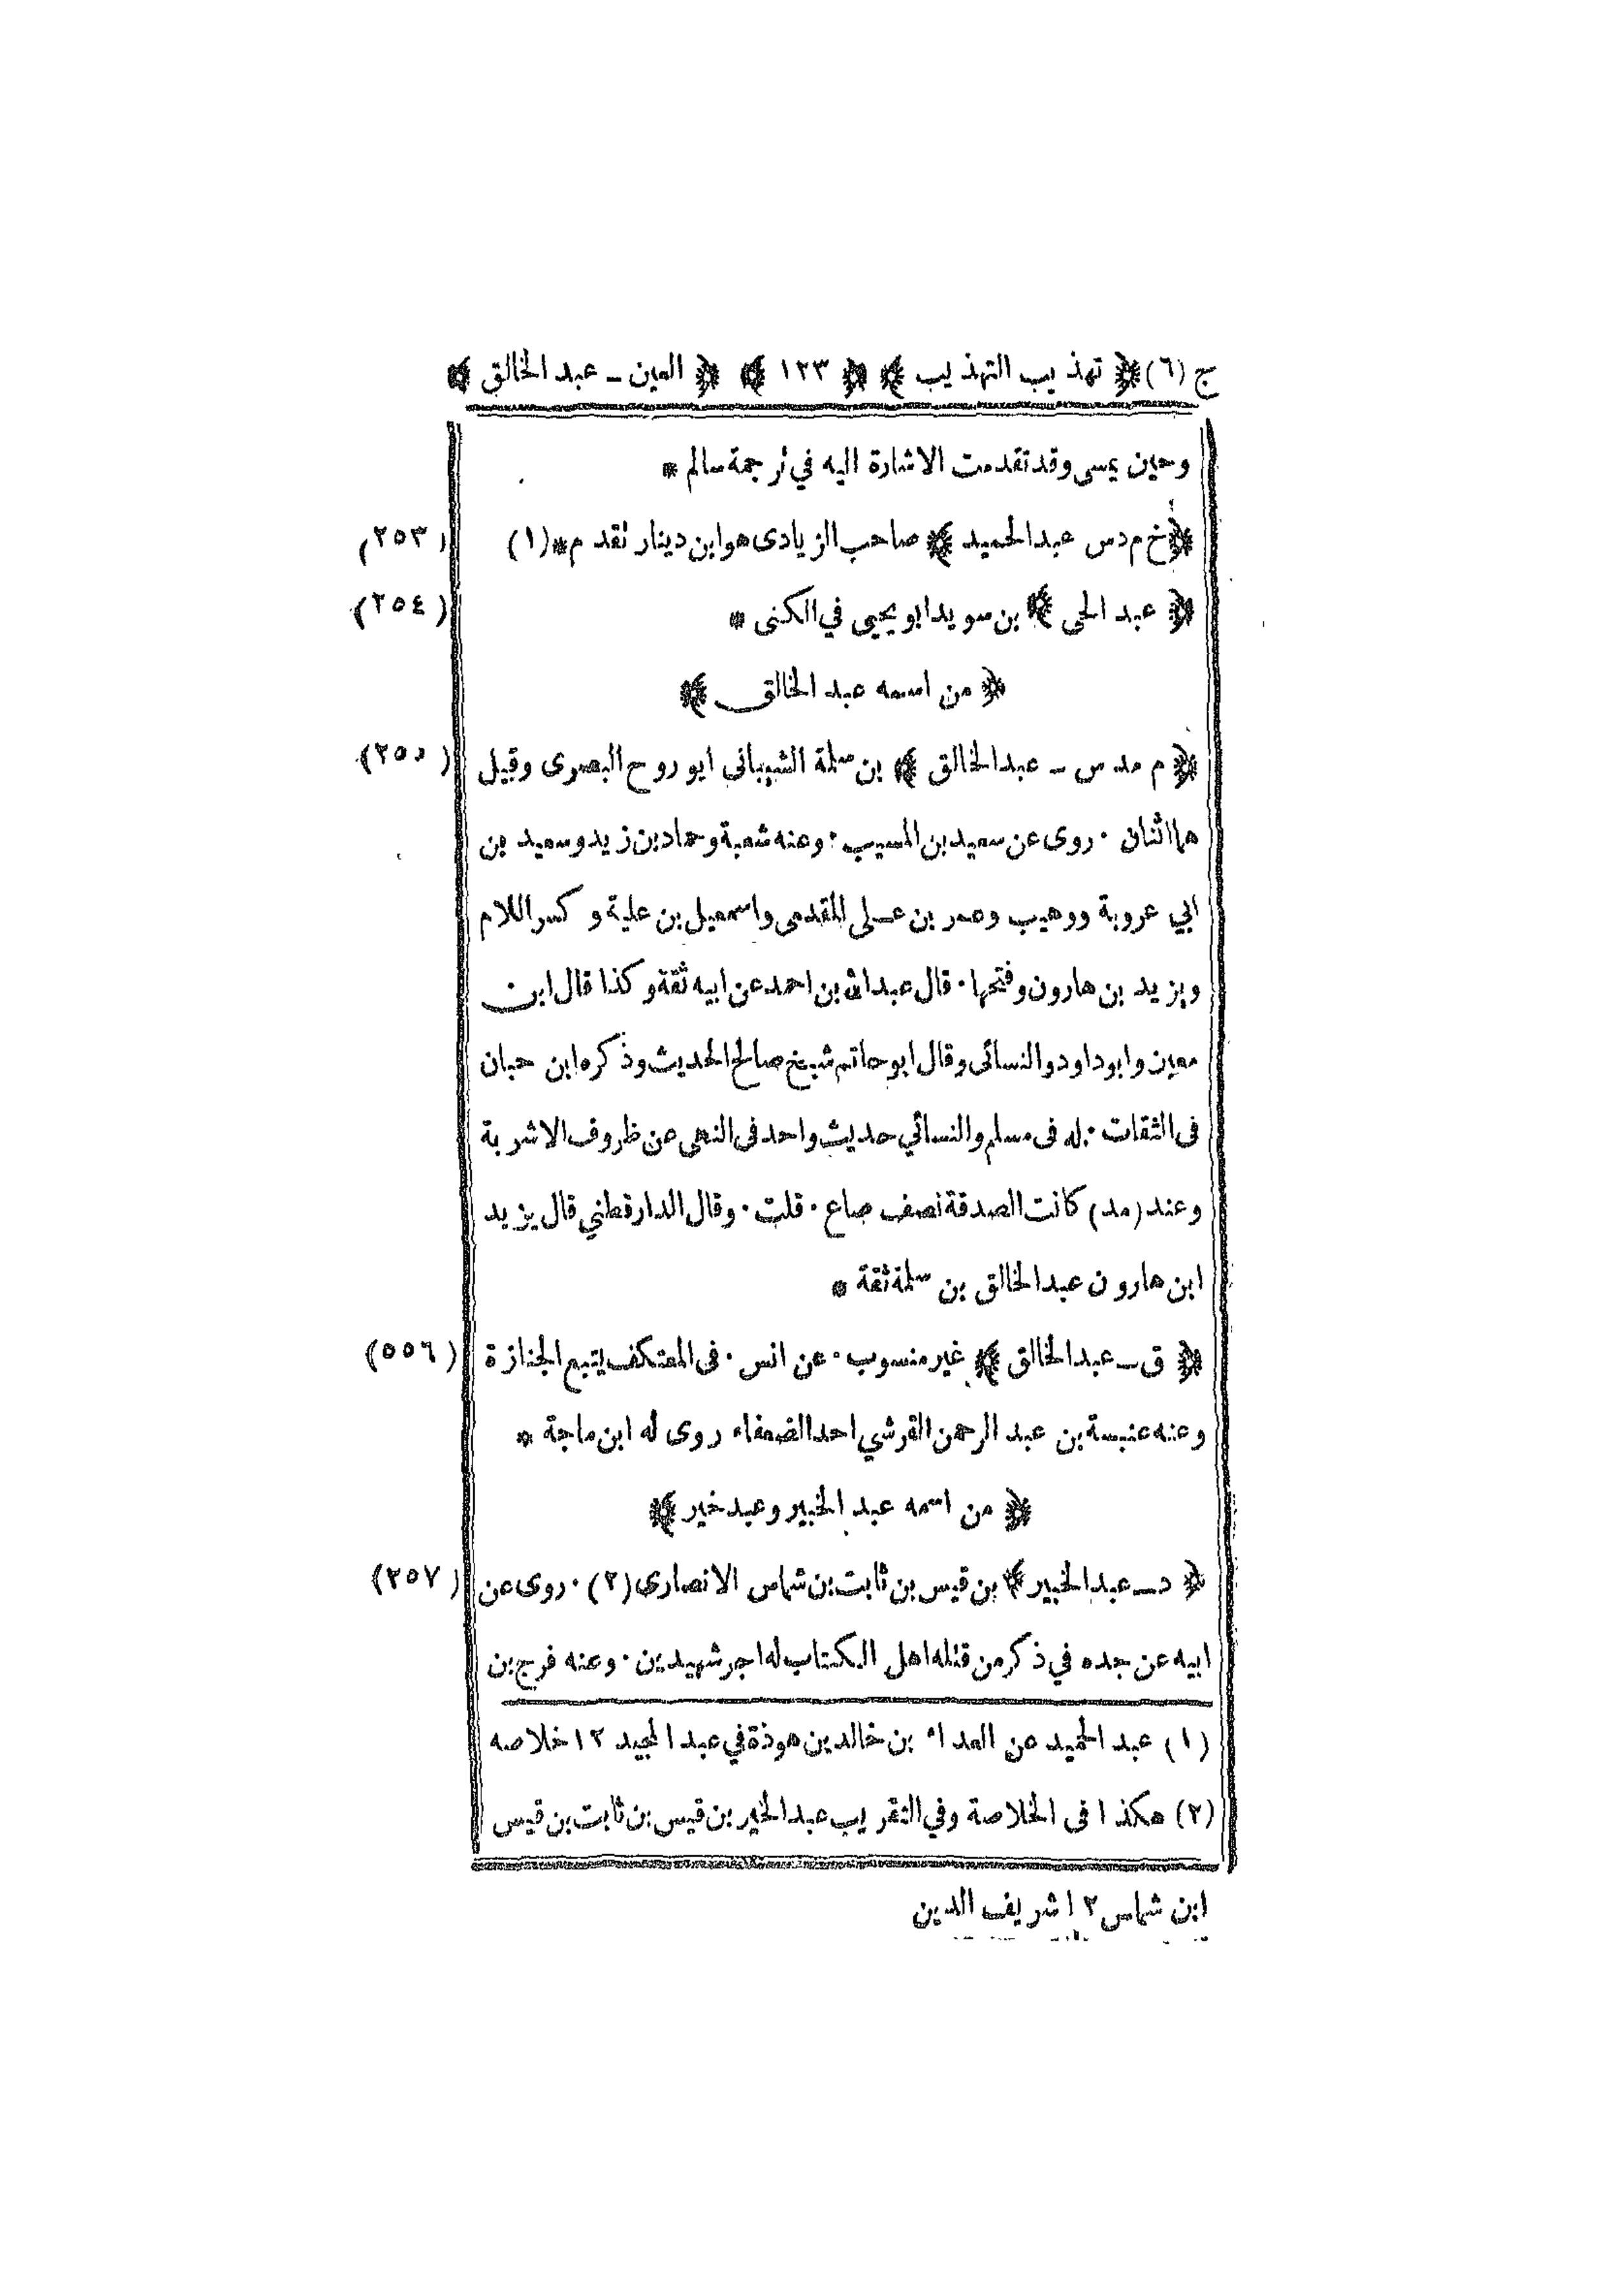 ج (٦) ﴿ تهذيب التهذيب ﴾ ﴿ ١٢٣ ﴾ ﴿ العين ـ عبد الخالق ﴾
وحين يمسى وقد تقدمت الاشارة اليه في ترجمة سالم *
﴿ خ م د س عبد الحميد ﴾ صاحب الزيادى هو ابن دينار تقدم * (١) (٢٥٣)
﴿ عبد الحى ﴾ بن سويد ابو يحيى في الكنى * (٢٥٤)
﴿ من اسمه عبد الخالق ﴾
﴿ م مد س ـ عبد الخالق ﴾ بن سلمة الشيبانى ابو روح البصرى وقيل (٢٥٥)
هما اثنان ٠ روى عن سعيد بن المسيب ٠ وعنه شعبة وحماد بن زيد وسعيد بن
ابي عروبة ووهيب وعمر بن عـلى المقدمى واسمعيل بن علية و كسر اللام
ويزيد بن هارون وفتحها ٠ قال عبد الله بن احمد عن ابيه ثقة وكذا قال ابن
معين وابو داود والنسائى وقال ابو حاتم شيخ صالح الحديث وذكره ابن حبان
فى الثقات ٠ له فى مسلم والنسائي حديث واحد فى النهى عن ظروف الاشربة
وعند (مد) كانت الصدقة نصف صاع ٠ قلت ٠ وقال الدارقطني قال يزيد
ابن هارون عبد الخالق بن سلمة ثقة *
﴿ ق ـ عبد الخالق ﴾ غير منسوب ٠ عن انس ٠ فى المعتكف يتبع الجنازة (٥٥٦)
وعنه عنبسة بن عبد الرحمن القرشي احد الضعفاء روى له ابن ماجة *
﴿ من اسمه عبد الخبير وعبد خير ﴾
﴿ د ـ عبد الخبير ﴾ بن قيس بن ثابت بن شماس الانصارى (٢) ٠ روى عن (٢٥٧)
ابيه عن جده في ذكر من قتله اهل الكتاب له اجر شهيدين ٠ وعنه فرج بن
(١) عبد الحميد عن العداء بن خالد بن هوذة في عبد المجيد ١٢ خلاصه
(٢) هكذا فى الخلاصة وفي التقريب عبد الخبير بن قيس بن ثابت بن قيس
ابن شماس ١٢ شريف الدين